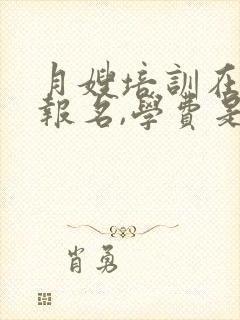 月嫂培訓在
報名,學費是
肖勇